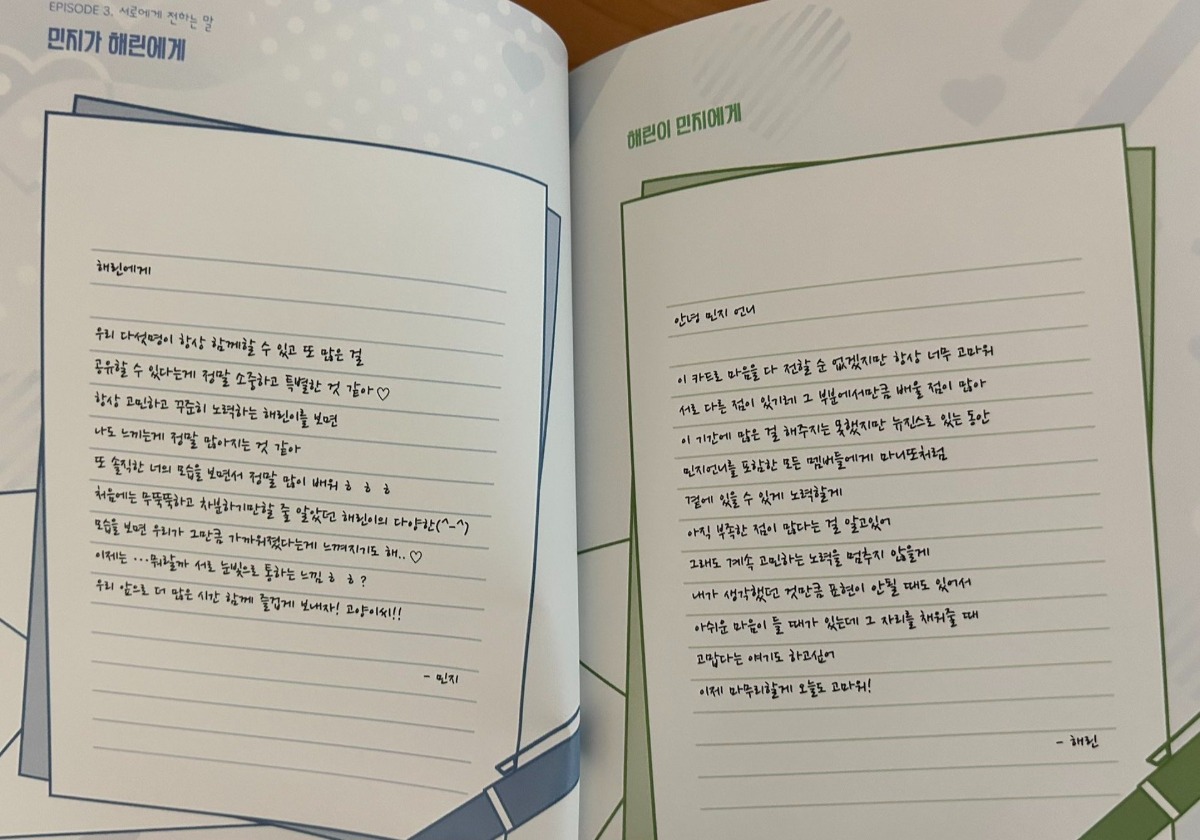 EPISODE 3. 서로에게 전하는 말
민지가 해린에게
해린에게
우리 다섯명이 항상 함께할 수 있고 또 많은 걸
공유할 수 있다는게 정말 소중하고 특별한 것 같아♡
항상 고민하고 꾸준히 노력하는 해린이를 보면
나도 느끼는게 정말 많아지는 것 같아
또 솔직한 너의 모습을 보면서 정말 많이 배워 ㅎ ㅎ ㅎ
처음에는 무뚝뚝하고 차분하기만할 줄 알았던 해린이의 다양한(^-^)
모습을 보면 우리가 그만큼 가까워졌다는게 느껴지기도 해..♡
이제는 ...뭐랄까 서로 눈빛으로 통하는 느낌 ㅎ ㅎ ?
우리 앞으로 더 많은 시간 함께 즐겁게 보내자! 고양이씨!!
- 민지
해린이 민지에게
안녕 민지 언니
이 카드로 마음을 다 전할 순 없겠지만 항상 너무 고마워
서로 다른 점이 있기에 그 부분에서만큼 배울 점이 많아
이 기간에 많은 걸 해주지는 못했지만 뉴진스로 있는 동안
민지언니를 포함한 모든 멤버들에게 마니또처럼
곁에 있을 수 있게 노력할게
아직 부족한 점이 많다는 걸 알고있어
그래도 계속 고민하는 노력을 멈추지 않을게
내가 생각했던 것만큼 표현이 안될 때도 있어서
아쉬운 마음이 들 때가 있는데 그 자리를 채워줄 때
고맙다는 얘기도 하고싶어
이제 마무리할게 오늘도 고마워!
- 해린